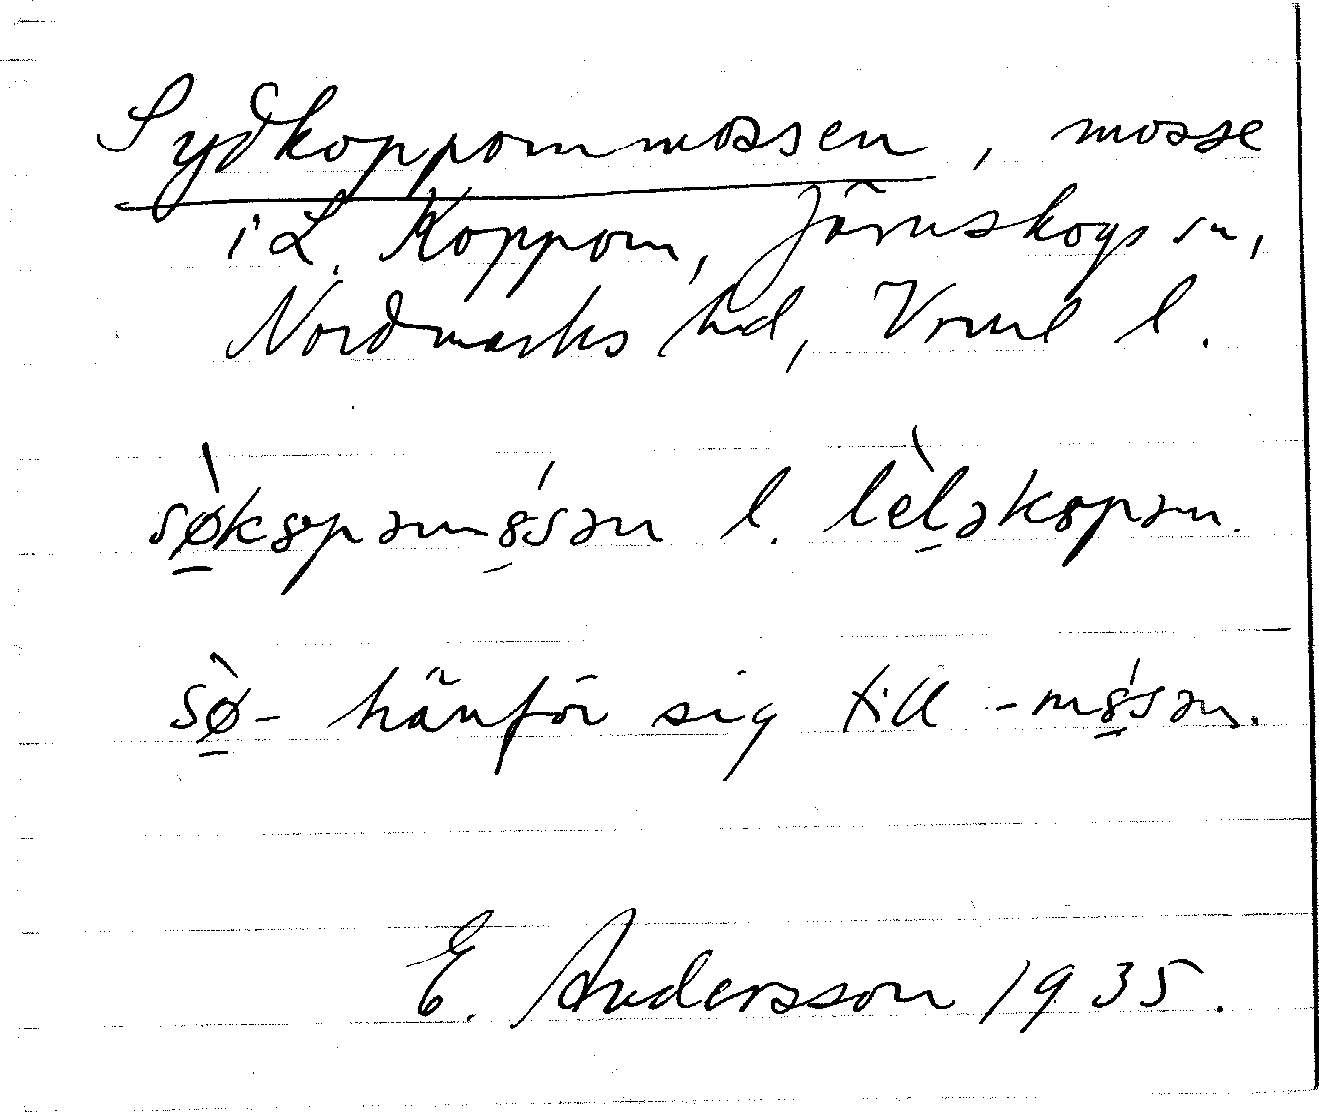 Sydkoppommossen, mosse
i L. Koppom, Järnskogs sn,
Nordmarks hd, Vrml l.
sø̀kȣpəmȣ́sən l. lèləkȣpəm.
sø̀- hänför sig till -mȣ́sən.
E. Andersson 1935.